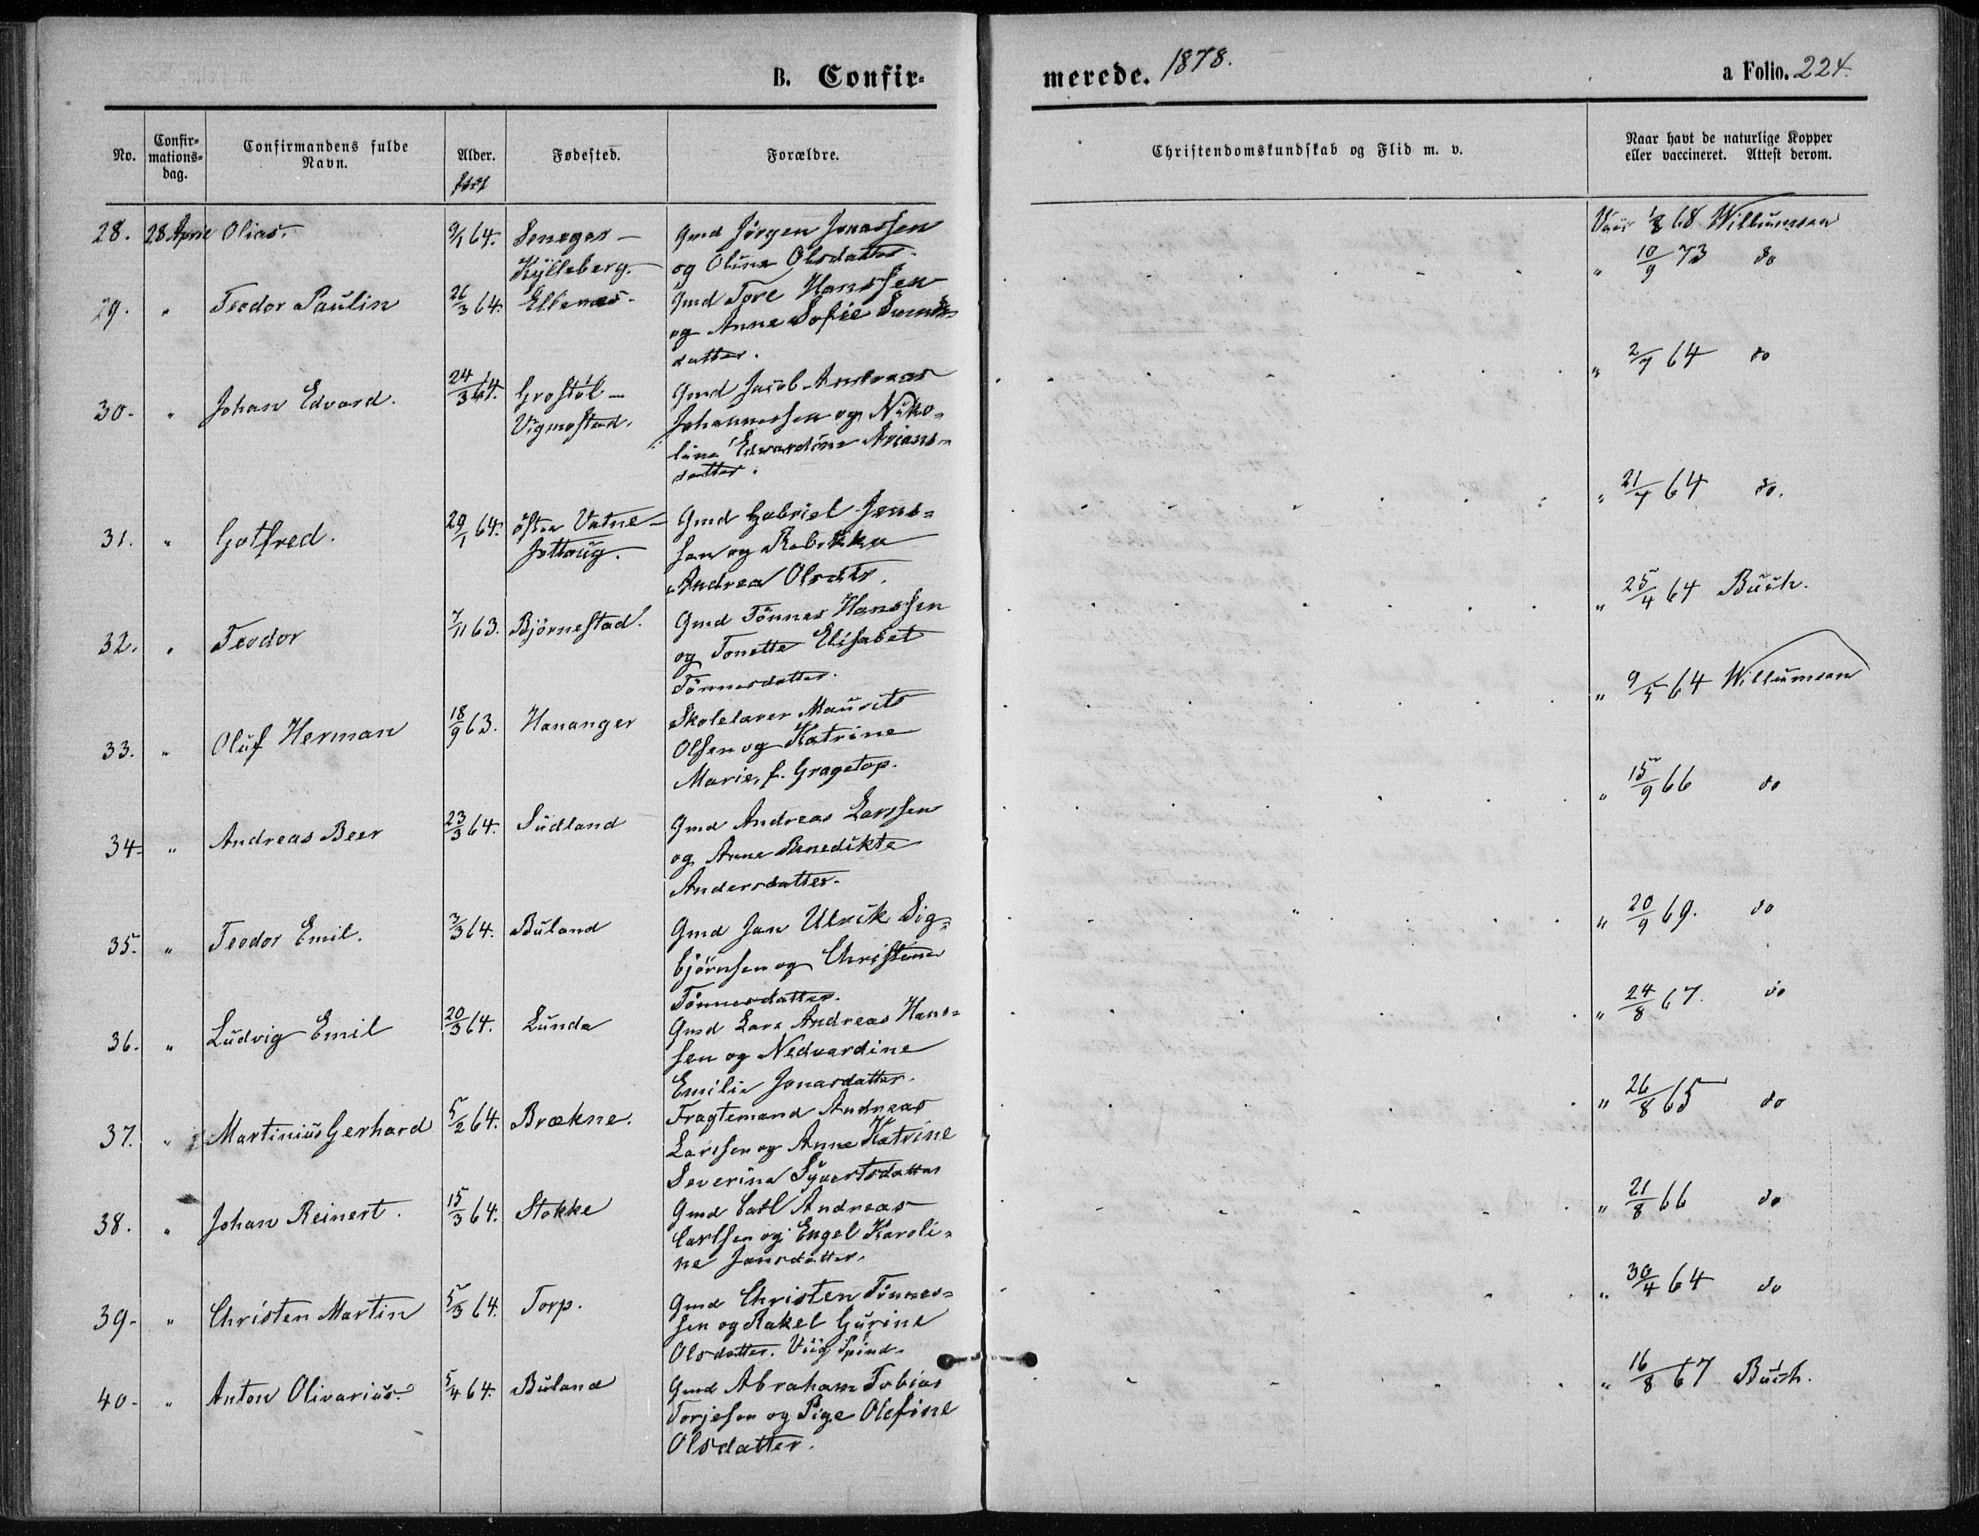 B. Confir-
merede. 1878.
a Folio. 224.
No.
Confir-
mations-
dag.
Confirmandens fulde
Navn.
Alder.
Fødested.
Forældre.
Christendomskundskab og Flid m. v.
Naar havt de naturlige Kopper
eller vaccineret. Attest derom.
28. 28 April Olias. 9/1 64. Gmd Jörgen Jonassen 68 Willumsen
Kylleberg. og Oline Olsdatter.
" 10/9 73 do
29. " Teodor Paulin 26/3 64. Ellenes. Gmd Tore Hanssen
og Anne Sofie
datter.
" 2/7 64 do
30. " Johan Edvard. 24/3 64. Grostöl - Gmd Jacob Andreas
Vigmostad. Johannessen og Niko-
line Edvardine Arians-
datter.
" 21/7 64 do.
31. " Gotfred. 29/1 64. östre Vatne - Gmd Gabriel Jens-
sen og Rebekka
Andrea Olsdtr.
" 25/4 64 Buch.
32. " Teodor 7/11 63. Björnestad. Gmd Tönnes Hanssen
og Tonette Elisabet
Tönnesdatter.
" 9/5 64 Willumsen
33. " Oluf Herman 18/9 63. Hananger Skolelærer Maurits
Olsen og Katrine
Marie, f. Gragetop.
" 15/9 66 do
34. " Andreas Beer 23/3 64. Sudland Gmd Andreas Larssen
og Anne Benedikte
Andersdatter.
" 20/9 69. do
35. " Teodor Emil. 3/3 64. Buland Gmd Jan Ulrik Sig-
björnsen og Christine
Tönnesdatter.
" 24/8 67. do
36. " Ludvig Emil 20/3 64. Lunde Gmd Lars Andreas Hans-
sen og Nedvardine
Emilie Jonasdatter.
" 26/8 65 do
37. " Martinius Gerhard 5/2 64. Brækne. Fragtemand Andreas
Larssen og Anne Katrine
Severine Syvertsdatter
" 21/8 66 do
38. " Johan Reinert. 15/3 64. Stokke Gmd Carl Andreas
Carlsen og Engel Karoli-
ne Jansdatter.
" 30/4 64 do
39. " Christen Martin 5/3 64. Torp. Gmd Christen Tönnes-
sen og Rakel Gurine
Olsdatter.
" 16/8 67 Buch.
40. " Anton Olivarius. 5/4 64. Buland Gmd Abraham Tobias
Torjesen og Pige Olefine
Olsdatter.